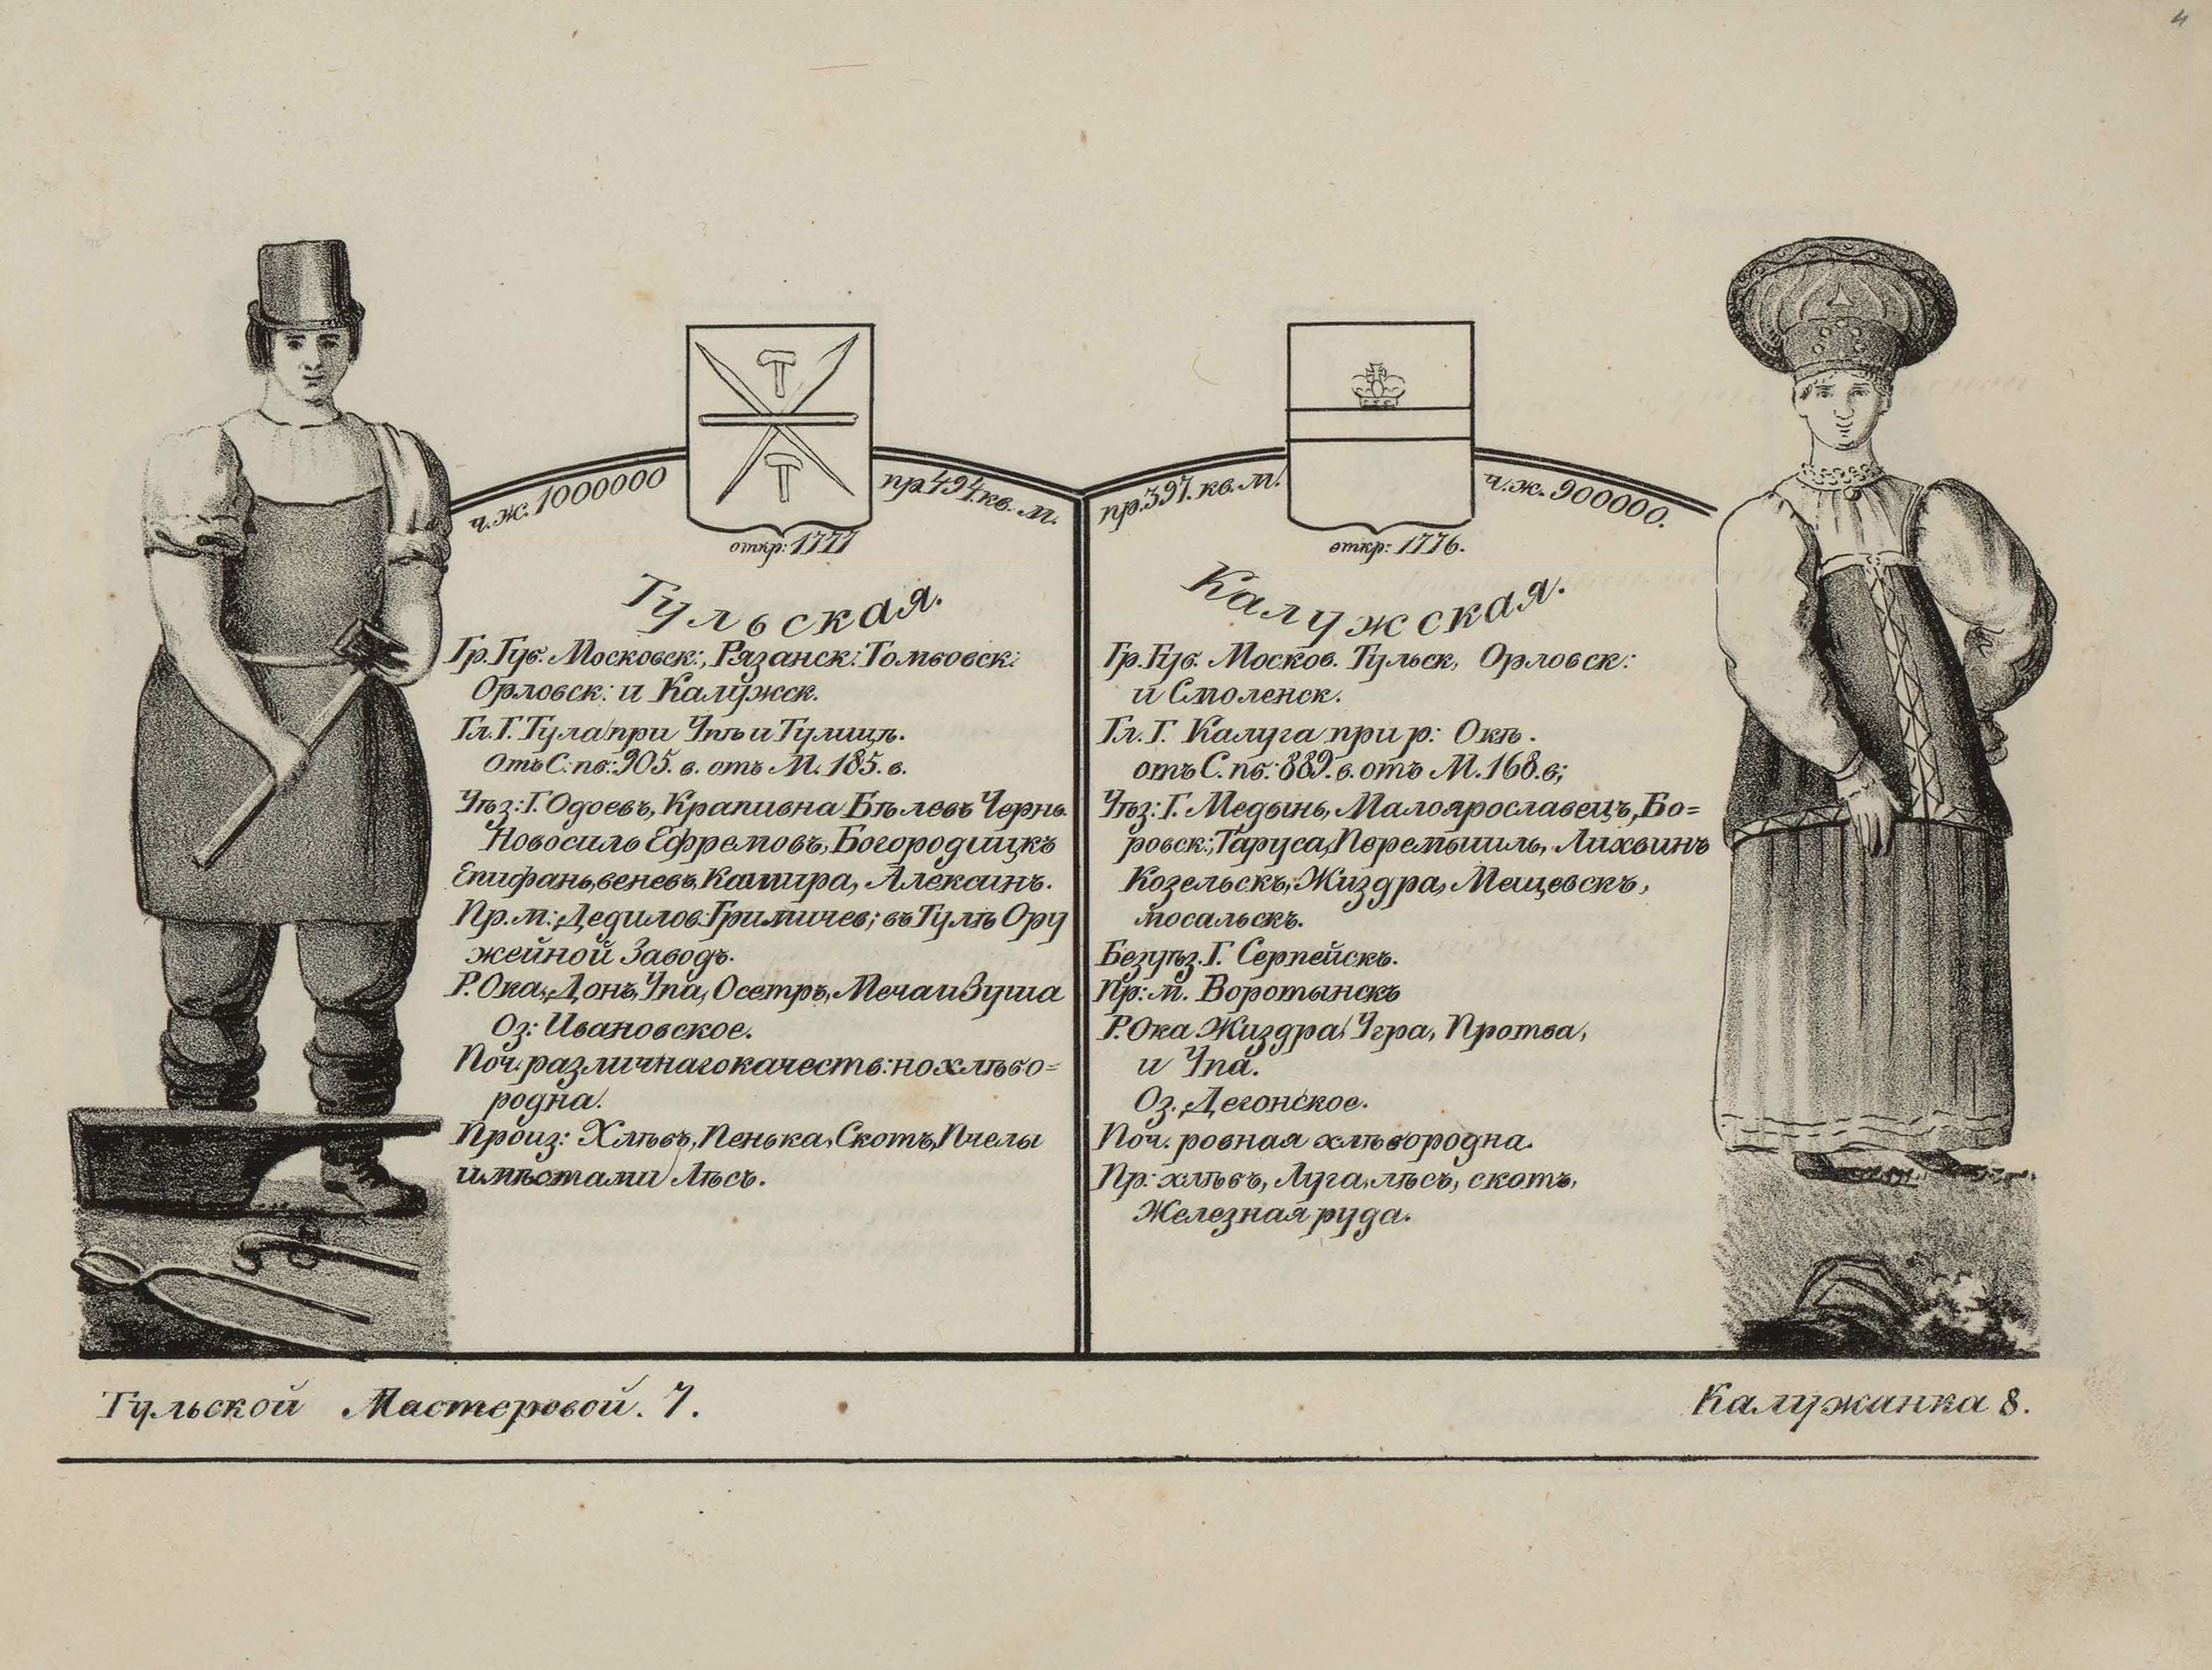 4
ч.ж. 1000000
пр. 494 кв. м.
откр: 1777
Тульская.
Гр. Губ. Московск:, Рязанск: Томбовск:
Орловск: и Калужск.
Гл. Г. Тула при Упѣ и Тулицѣ.
отъ С: пб.: 905. в. отъ М. 185. в.
Уѣз: Г. Одоевъ, Крапивна Бѣлевъ Чернь.
Новосиль Ефремовъ, Богородицкъ
Епифань, веневъ, Кашира, Алексинъ.
Пр. м: Дедилов: Гримичев; въ Тулѣ Ору
жейной Заводъ.
Р. Ока, Донъ, Упа, Осетръ, Меча и Зуша
Оз: Ивановское.
Поч. различнаго качеств: но хлѣбо=
родна.
Произ: Хлѣбъ, Пенька, Скотъ, Пчелы
и мѣстами Лѣсъ.
пр. 397. кв. м.
ч. ж. 900000.
откр: 1776.
Калужская.
Гр. Губ. Москов. Тульск, Орловск:
и Смоленск.
Гл. Г. Калуга при р: Окѣ.
отъ С. пб.: 889. в. отъ М. 168. в;
Уѣз: Г. Медынь, Малоярославецъ, Бо=
ровск:, Таруса, Перемышль, Лихвинъ
Козельскъ, Жиздра, Мещевскъ,
мосальскъ.
Безуѣз. Г. Серпейскъ.
Пр: м. Воротынскъ
Р. Ока Жиздра, Угра, Протва,
и Упа.
Оз. Дегонское.
Поч. ровная хлѣбородна.
Пр: хлѣбъ, Луга, лѣсъ, скотъ,
Железная руда.
Тульской Мастеровой. 7.
Калужанка 8.